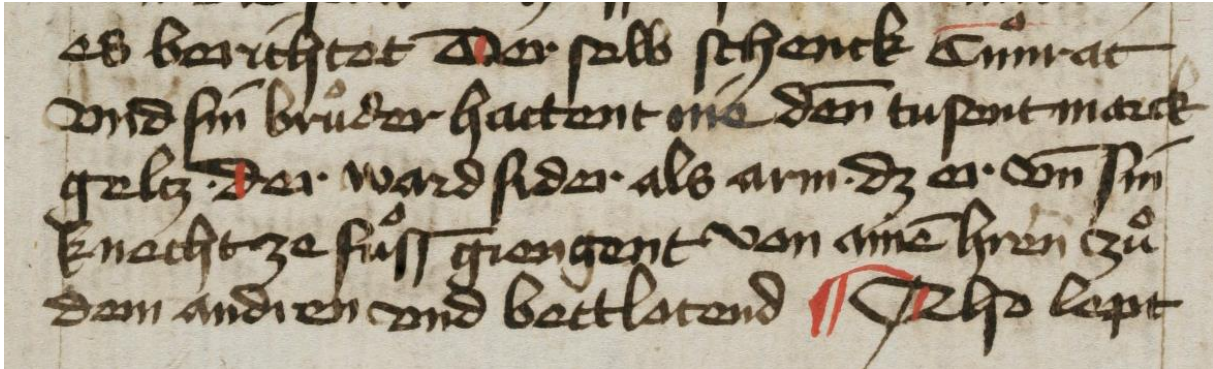 es berichtet Der selb schenck Cuͦnrat
vnd sin bruͦder hattent me den̄ tusent marck
geltz · Der ward sider als arm · dz er vn̄ sin
knecht ze fuͦss giengent von aine͞ hren czuͦ
dem andren vnd bettlotend ¶ Also lept